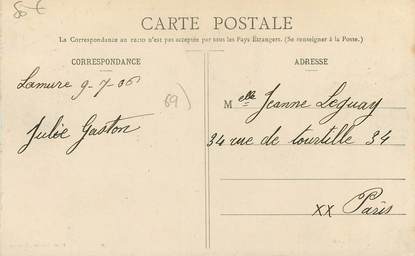 85 €
CARTE POSTALE
La Correspondance au recto n'est pas acceptée par tous les Pays Étrangers. (Se renseigner à la Poste.)
CORRESPONDANCE
Lamure 9-7-06
69)
Julie Gaston
ADRESSE
Melle Jeanne Leguay
34 rue de tourtille 34
XX Paris